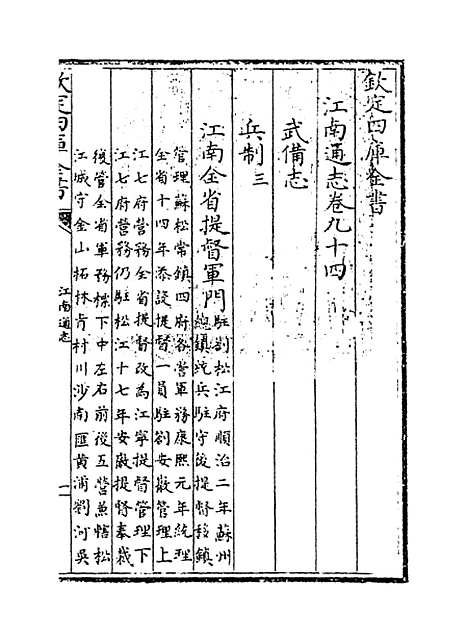 欽定四庫全書
江南通志卷九十四
武備志
兵制三
江南全省提督軍門駐劄松江府順治二年蘇州
總鎮統兵駐守後提督移鎮
管理蘇松常鎮四府各營軍務康熙元年統理
全省十四年添設提督一員駐劄安徽管理上
江七府營務全省提督改為江寧提督管理下
江七府營務仍駐松江十七年安徽提督奉裁
後管全省軍務標下中左右前後五營兼轄松
江城守金山柘林青村川沙南匯黃浦劉河吳
欽定四庫全書
江南通志
一